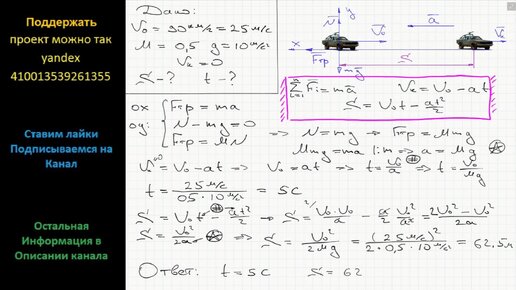 Поддержать
проект можно так
yandex
410013539261355
Ставим лайки
Подписываемся на
Канал
Остальная
Информация в
Описании канала
Дано:
V₀ = 90 км/с = 25 м/с
M = 0,5 g = 10 м/с²
Vк = 0
S - ? t - ?
N y V₀ a V₀
x Fтр mg S
ΣFi = ma Vк = V₀ - at
S = V₀t - at²/2
ox { Fтр = ma
oy: { N - mg = 0 => N = mg => Fтр = Mmg
{ Fтр = MN Mmg = ma |:m => a = Mg
Vк = V₀ - at => V₀ = at => t = V₀/a => t = V₀/Mg
t = 25 м/с / 0,5·10 м/с² = 5 с
S = V₀t - at²/2 => S = V₀·V₀/a - a/2 V₀²/a² = 2V₀² - V₀²/2a
S = V₀²/2a => S = V₀²/2Mg = (25 м/с)²/2·0,5·10 м/с² = 62,5 м
Ответ: t = 5 с S = 62